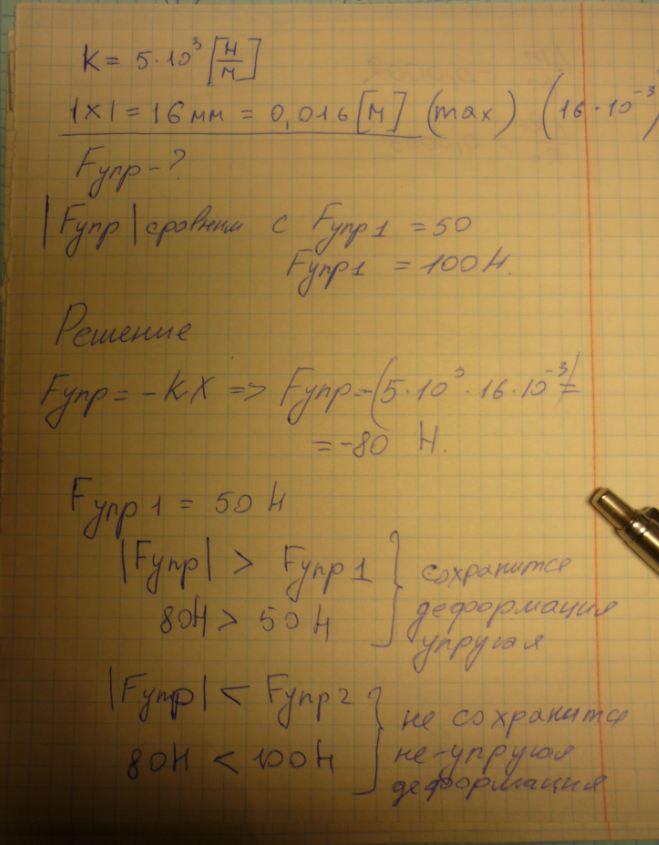 K = 5·10³ [Н/м]
|X| = 16 мм = 0,016 [м] (max) (16·10⁻³)
Fупр - ?
|Fупр| сравним с Fупр1 = 50
Fупр1 = 100 Н.
Решение
Fупр = -KX => Fупр = -(5·10³·16·10⁻³) =
= -80 Н.
Fупр1 = 50 Н
|Fупр| > Fупр1 } сохранится
80Н > 50 Н деформация
упругая
|Fупр| < Fупр2 } не сохранится
80Н < 100Н не-упругая
деформация